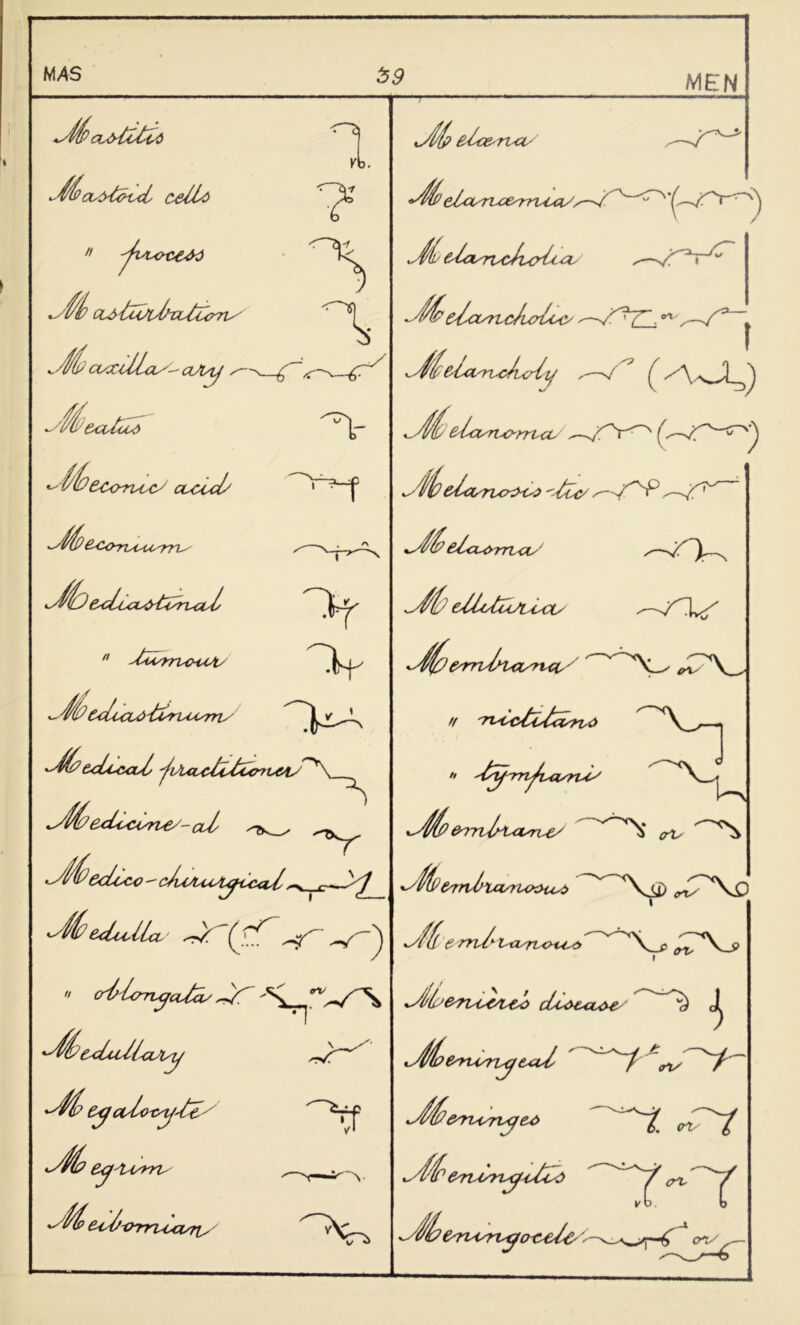 MAS 39 MEN
Mastitis
Mastoid cells
" process
Masturbation
Maxilla-ary
Meatus
Meconic acid
Meconium
Mediastinal
" tumour
Mediastinum
Medical practitioner
Medicine-al
Medico-chirurgical
Medulla
" oblongata or
Medullary
Megalocyte
Megrim
Meibomian
Melæna
Melanæmia
Melancholia
Melancholic or
Melancholy
Melanoma
Melanosis-tic
Melasma
Melituria
Membrana or
" nictitans
" tympani
Membrane or
Membranosus or
Membranous or
Menieres disease
Meningeal or
Meninges or
Meningitis or
Meningocele or